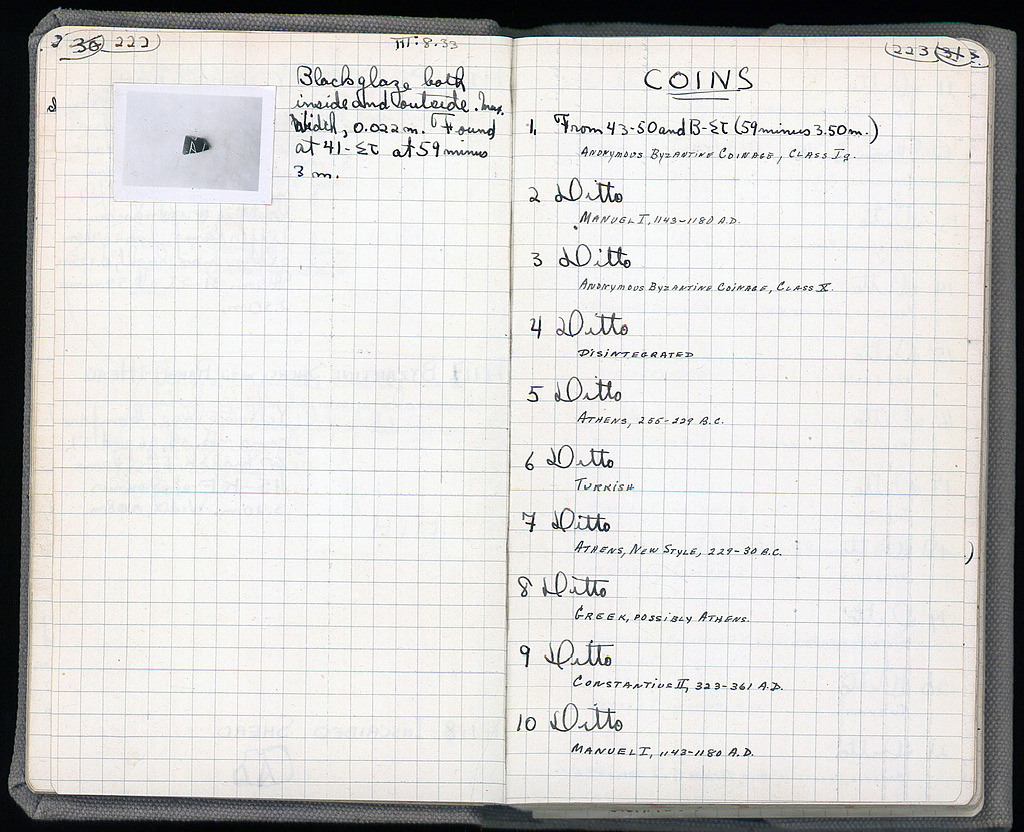 36 222
III:8.33
Black glaze both
inside and outside. Max.
Width, 0.022 m. Found
at 41-ΣΤ at 59 minus
3 m.
223
COINS
1. From 43-50 and B-ΣΤ (59 minus 3.50 m.)
ANONYMOUS BYZANTINE COINAGE, CLASS Ia.
2 Ditto
MANUEL I, 1143-1180 A.D.
3 Ditto
ANONYMOUS BYZANTINE COINAGE, CLASS X.
4 Ditto
DISINTEGRATED
5 Ditto
ATHENS, 255-229 B.C.
6 Ditto
TURKISH
7 Ditto
ATHENS, NEW STYLE, 229-30 B.C.
8 Ditto
GREEK, POSSIBLY ATHENS.
9 Ditto
CONSTANTIUS II, 323-361 A.D.
10 Ditto
MANUEL I, 1143-1180 A.D.